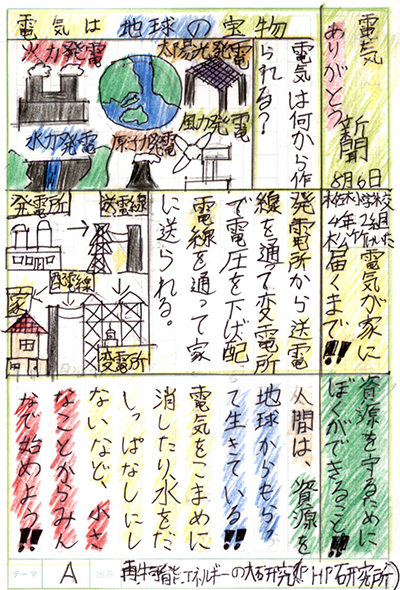 電気
ありがとう
新聞
8月6日
4年2組
電気は地球の宝物
電気は何から作
られる？
火力発電
太陽光発電
水力発電
原子力発電
風力発電
電気が家に
届くまで!!
発電所から送電
線を通って変電所
で電圧を下げ配
電線を通って家
に送られる。
発電所
送電線
配電線
家
変電所
資源を守るために
ぼくができること!!
人間は、資源を
地球からもらっ
て生きている!!
電気をこまめに
消したり水をだ
しっぱなしにし
ないなど、小さ
なことからみん
なで始めよう!!
テーマ
A